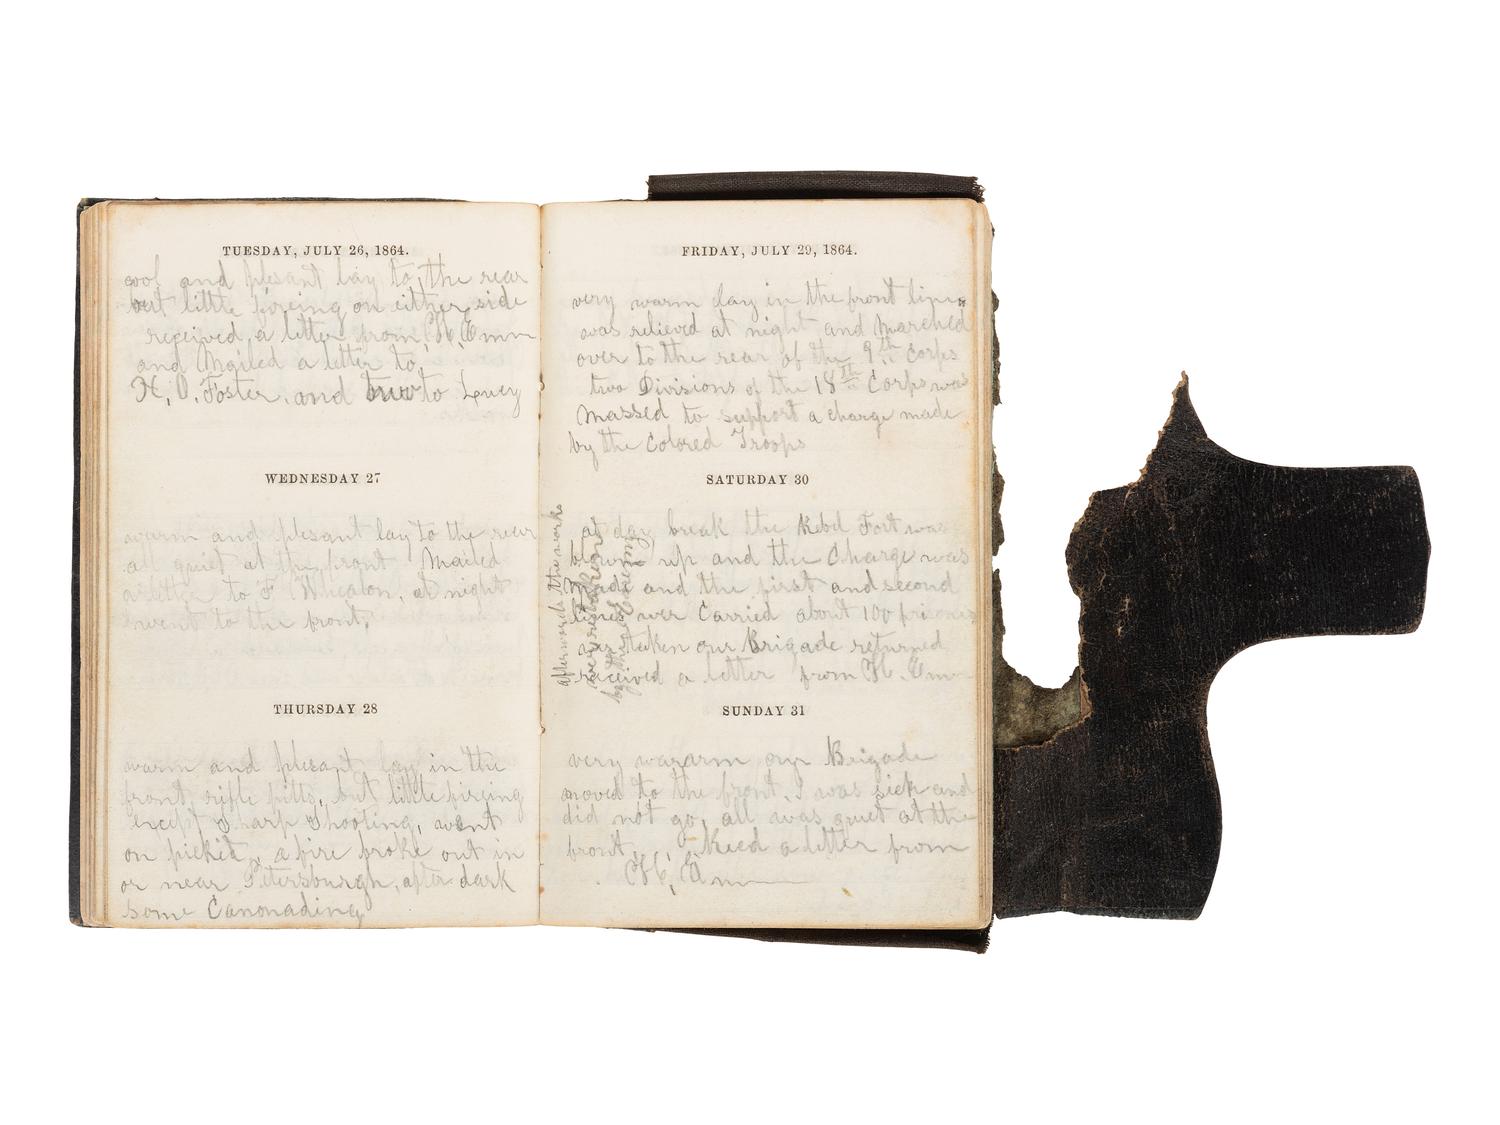 TUESDAY, JULY 26, 1864.
cool and plesant lay to the rear
but little fireing on either side
received a letter from H. Emm
and Mailed a letter to
H. O. Foster. and two to Lucy
WEDNESDAY 27
warm and plesant lay to the rear
all quiet at the front Mailed
a letter to F Whealon, at night
went to the front.
THURSDAY 28
warm and plesant lay in the
front rifle pitts, but little fireing
except Sharp Shooting, went
on picket, a fire broke out in
or near Petersburgh, after dark
some Canonading
FRIDAY, JULY 29, 1864.
very warm lay in the front line
was relieved at night and Marched
over to the rear of the 9th Corps
two Divisions of the 18th Corps was
Massed to support a charge made
by the Colored Troops
SATURDAY 30
at day break the Rebel Fort was
blown up and the Charge was
Made and the first and second
lines wer Carried about 100 prisones
was taken our Brigade returned
received a letter from H. Emm
afterwards the works
were retaken
by the Enemy
SUNDAY 31
very wararm our Brigade
moved to the front, I was sick and
did not go, all was quiet at the
front. Recd a letter from
H, Em